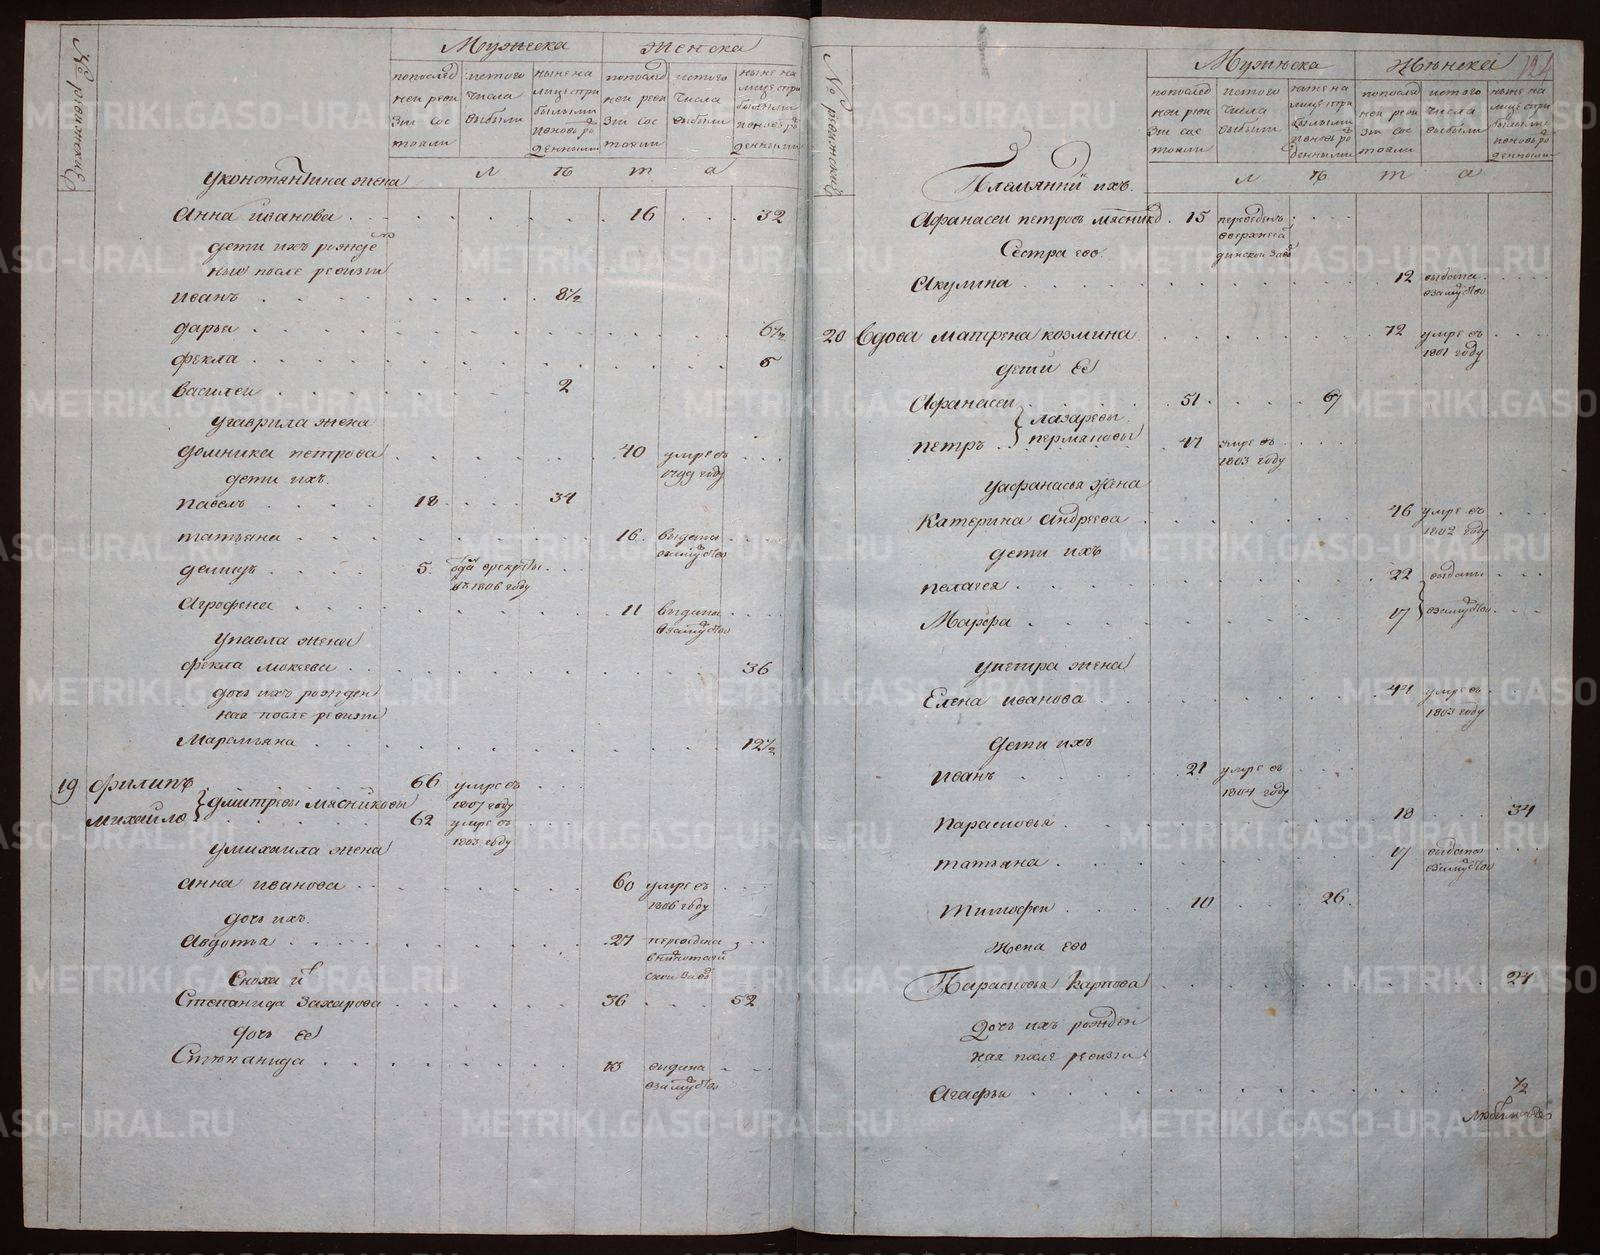 № ревижские
Мужеска
женска
попослед
ней реви
зии сос
тояли
истого
числа
выбыли
ныне на
лице спри
былыми
поновь ро
денными
попослед
ней реви
зии сос
тояли
истого
числа
выбыли
ныне на
лице спри
былыми
поновь ро
денными
л ѣ т а
уконстантина жена
Анна иванова 16 32
дети ихъ рожде
ные после ревизти
иванъ 8½
дарья 6½
фекла 5
василеи 2
угаврила жена
домника петрова 40 умре въ
1799 году
дети ихъ
павелъ 18 34
татьяна 16 выдана
взамуство
демидъ 5 одан врекруты
въ 1806 году
Агрофена 11 выдана
взамуство
упавла жена
фекла мокеева 36
дочь ихъ рожден
ная после ревизти
Маремьяна 12½
19 филипъ 66 умре въ
1807 году
дмитревы мясниковы
михаило 62 умре въ
1803 году
умихаила жена
анна иванова 60 умре въ
1806 году
дочь ихъ
Авдотья 27 переведена
скои завод
Сноха и
Степанида захарова 36 52
дочь ее
Степанида 13 выдана
взамуство
№ ревижские
Мужеска
Женска
124
попослед
ней реви
зии сос
тояли
истого
числа
выбыли
ныне на
лице спри
былыми
поновь ро
денными
попослед
ней реви
зии сос
тояли
истого
числа
выбыли
ныне на
лице спри
былыми
поновь ро
денными
л ѣ т а
Племянни ихъ
Афанасеи петровъ мяснико 15 переведенъ
вверхнеи
динскои заво
Сестра его
Акулина 12 выдана
взамуство
20 вдова матрена козмина 72 умре въ
1801 году
дети ее
Афанасеи 51 67
лазаревы
пермяковы
петръ 47 умре въ
1803 году
уафанасья жена
Катерина андреева 46 умре въ
1802 году
дети ихъ
пелагея 22 выданы
Марфа 17 взамуство
упетра жена
Елена иванова 44 умре въ
1803 году
дети ихъ
иванъ 21 умре въ
1804 году
парасковья 18 34
татьяна 17 выдана
взамуство
тимофеи 10 26
жена его
Парасковья карпова 24
дочь ихъ рожден
ная после ревизти
Агафья ½